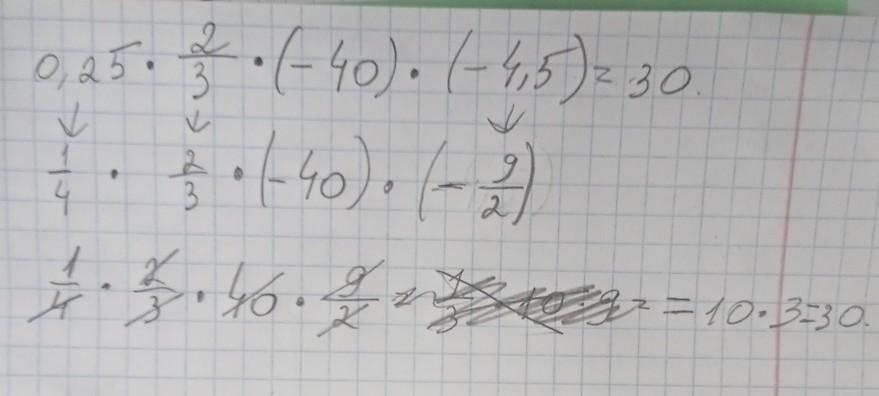 0,25 · 2/3 · (-40) · (-4,5) = 30.
↓ ↓ ↓
1/4 · 2/3 · (-40) · (-9/2)
1/4 · 2/3 · 40 · 9/2 = = 10 · 3 = 30.